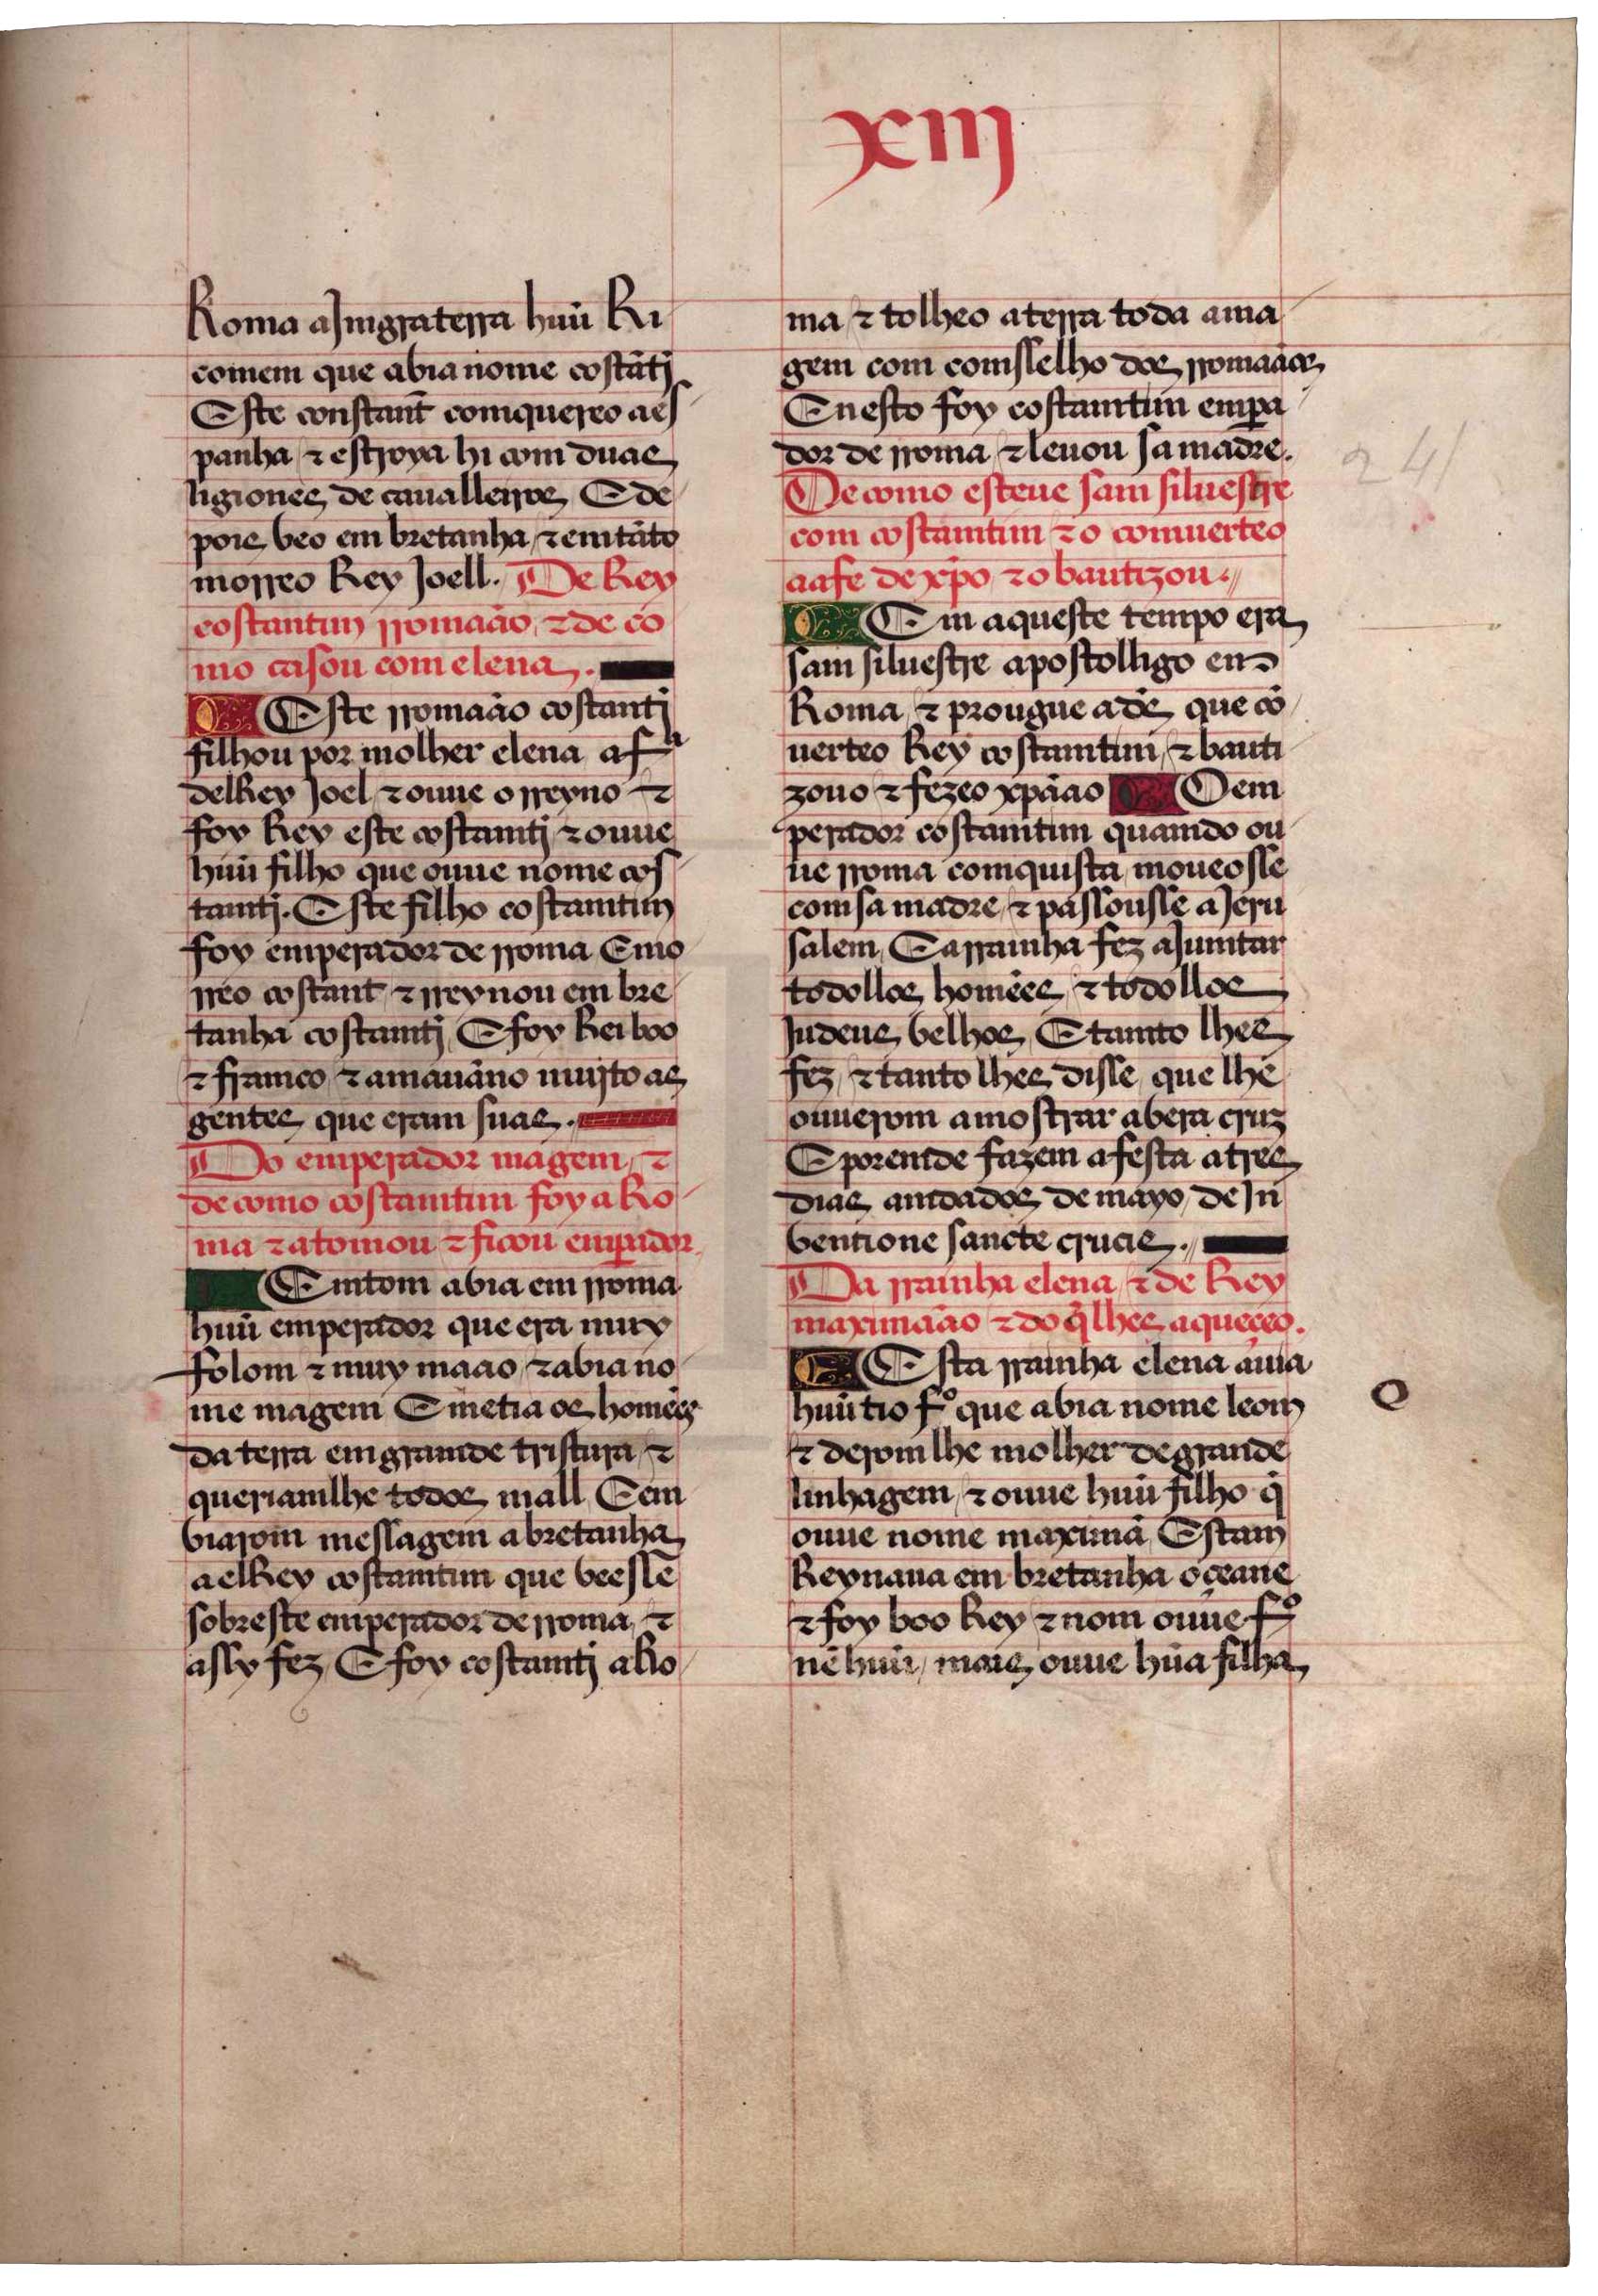 xiij
Roma aJmgraterra huũ Ri
comem que abia nome costãtj
Este constant̃ comquereo aes
panha ⁊ estroya hi com duas
ligiones de caualleiros E de
pois beo em bretanha ⁊ emtãto
morreo Rey Joell. De Rey
costantim rromaão ⁊ de co
mo casou com elena.
Este rromaão costantj
filhou por molher elena a fᵃ
delRey Joel ⁊ ouue o rreyno ⁊
foy Rey este costamtj ⁊ ouue
huũ filho que ouue nome cos
tamtj. Este filho costamtim
foy emperador de rroma E mo
rreo costant ⁊ rreynou em bre
tanha costamtj E foy Rei boo
⁊ framco ⁊ amauãno muyto as
gentes que eram suas.
Do emperador magem ⁊
de como costamtim foy a Ro
ma ⁊ a tomou ⁊ ficou emperador.
Emtom abia em rroma
huũ emperador que era muy
folom ⁊ muy maao ⁊ abia no
me magem E metia os homẽes
da terra em gramde tristura ⁊
queriamlhe todos mall E em
biarom messagem a bretanha
a elRey costamtim que beessẽ
sobreste emperador de rroma ⁊
assy fez E foy costamtj a Ro
ma ⁊ tolheo a terra toda a ma
gem com comsselho dos rromaãos
E nesto foy costamtim empa
dor de rroma ⁊ leuou sa madre.
De como esteue sam siluestre
com costamtim ⁊ o comuerteo
aa fe de xp̃o ⁊ o bautizou.
Em aqueste tempo era
sam siluestre apostolligo em
Roma ⁊ prougue a dẽs que cõ
uerteo Rey costamtim ⁊ bauti
zouo ⁊ fezeo xp̃ãao O em
perador costamtim quamdo ou
ue rroma comquista moueosse
com sa madre ⁊ passousse a Jeru
salem E a rrainha fez ajumtar
todollos homẽes ⁊ todollos
Judeus belhos E tamto lhes
fez ⁊ tanto lhes disse que lhe
ouuerom a mostrar a bera cruz
E poremde fazem a festa a tres
dias amdados de mayo de Jn
bentione sancte crucis.
Da rrainha elena ⁊ de Rey
maximiãao ⁊ do q̃ lhes aqueçeo.
Esta rrainha elena auia
huũ tio fº que abia nome leom
⁊ derom lhe molher de grande
linhagem ⁊ ouue huũ filho q̃
ouue nome maximiã Estam
Reynaua em bretanha oçeane
⁊ foy boo Rey ⁊ nom ouue fº
nẽ huũ mais ouue hũa filha
24